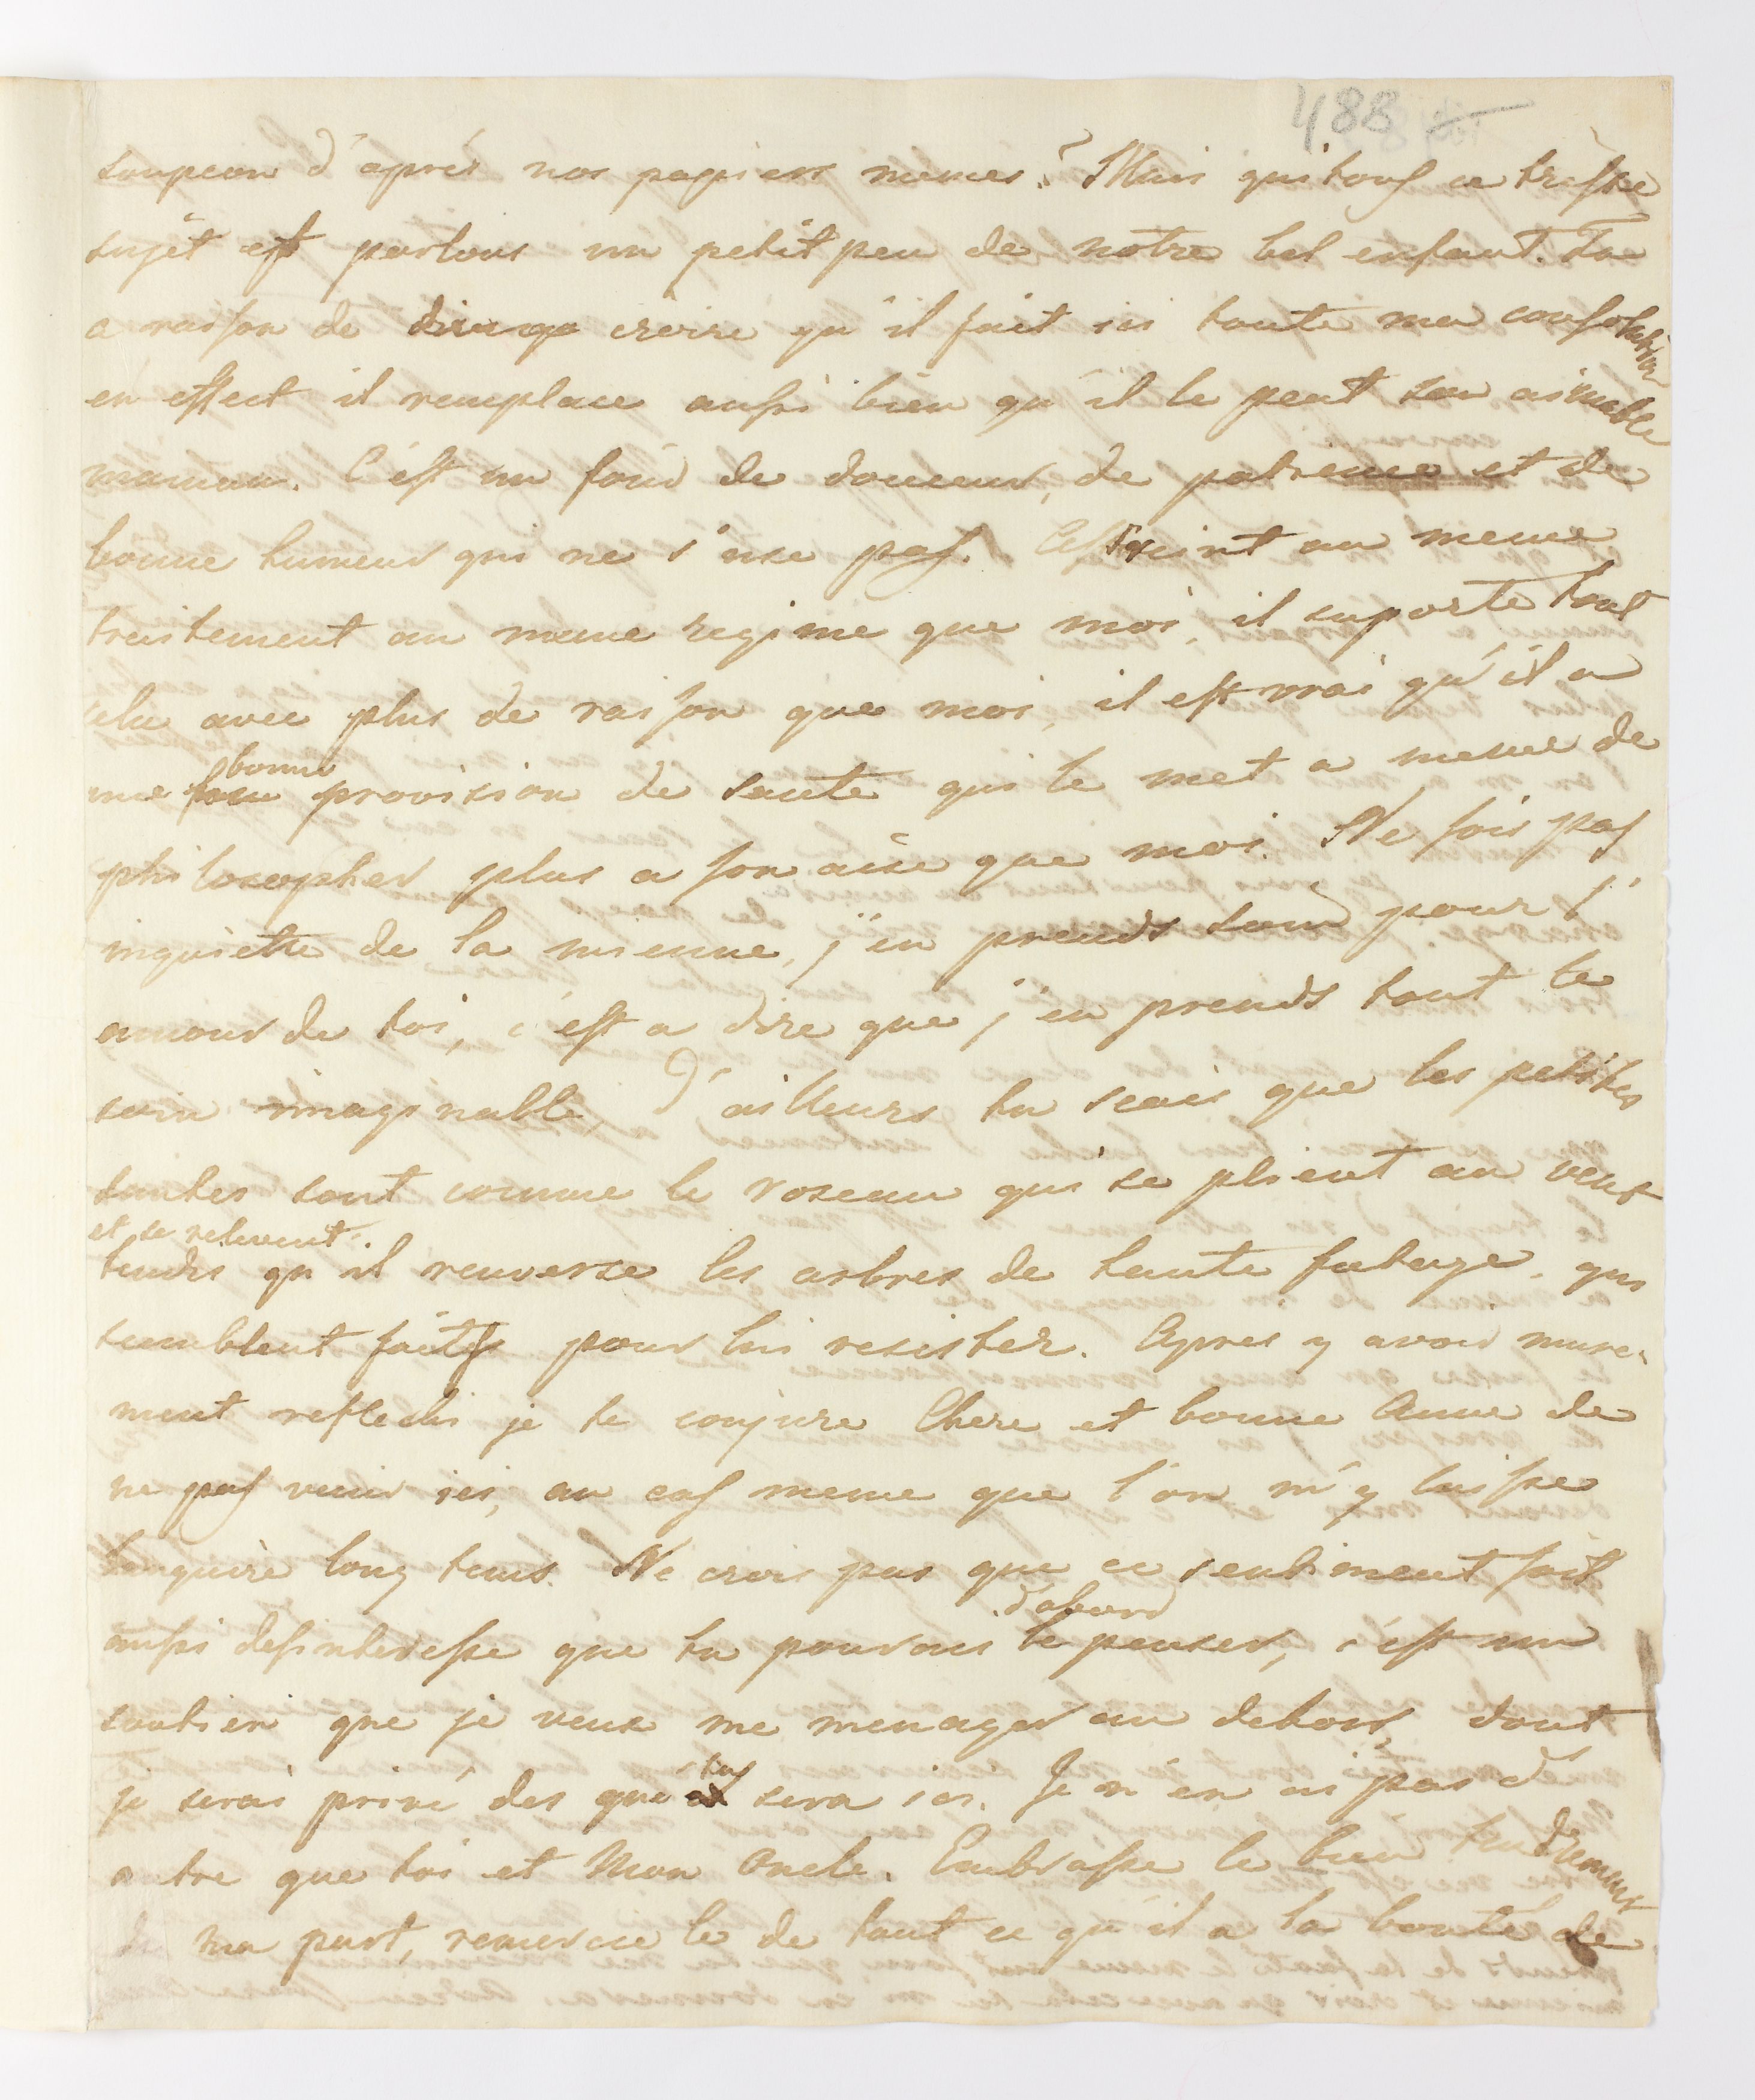 488
soupcon d'aprés nos papiers memes? Mais quitons ce triste
sujèt et parlons un petit peu de notre bel enfant. Tu
a raison de croire qu'il fait ici toute ma consolation
en effect il remplace aussi bien qu'il le peut son aimable
maman. C'est un fond de douceur, de patience et de
bonne humeur qui ne s'use pas. Astreint au meme
traitement au meme regime que moi, il suporte tout
cela avec plus de raison que moi, il est vrai qu'il a
bonne
une provision de sante qui le met a meme de
philosopher plus a son aise que moi. Ne sois pas
inquiette de la mienne, j'en prends soin pour l'
amour de toi, c'est a dire que j'en prends tout le
soin imaginable, d'ailleurs tu scais que les petites
santes sont comme le roseau qui se plient au vent
et se relevent.
tendis qu'il renverse les arbres de haute futaye, qui
semblent faits pour lui resister. Apres y avoir mure-
ment reflechi je te conjure Chere et bonne Anne de
ne pas venir ici, au cas meme que l'on m'y laisse
languire long tems. Ne crois pas que ce sentiment soit
d'abord
aussi desinteresse que tu pourrois le penser, c'est un
soutien que je veux me menager au dehors, dont
je serai privé des que tu sera ici. Je n'en ai pas d'
autre que toi et Mon Oncle. Embrasse le bien tendrement
de ma part, remercie le de tout ce qu'il a la bonté de